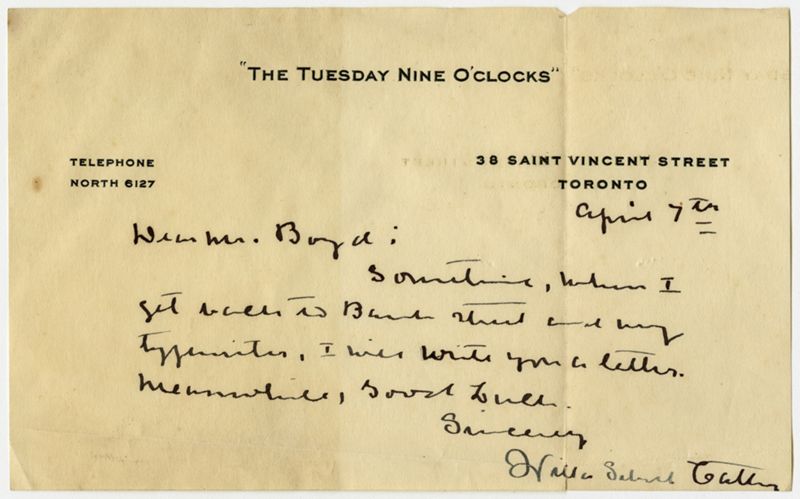 "THE TUESDAY NINE O'CLOCKS"
TELEPHONE
NORTH 6127
38 SAINT VINCENT STREET
TORONTO
April 7th
Dear Mr. Boyd:
Sometime, when I
get back to Bank street and my
typewriter, I will write you a letter.
Meanwhile, Good Luck.
Sincerely
Willa Sibert Cather